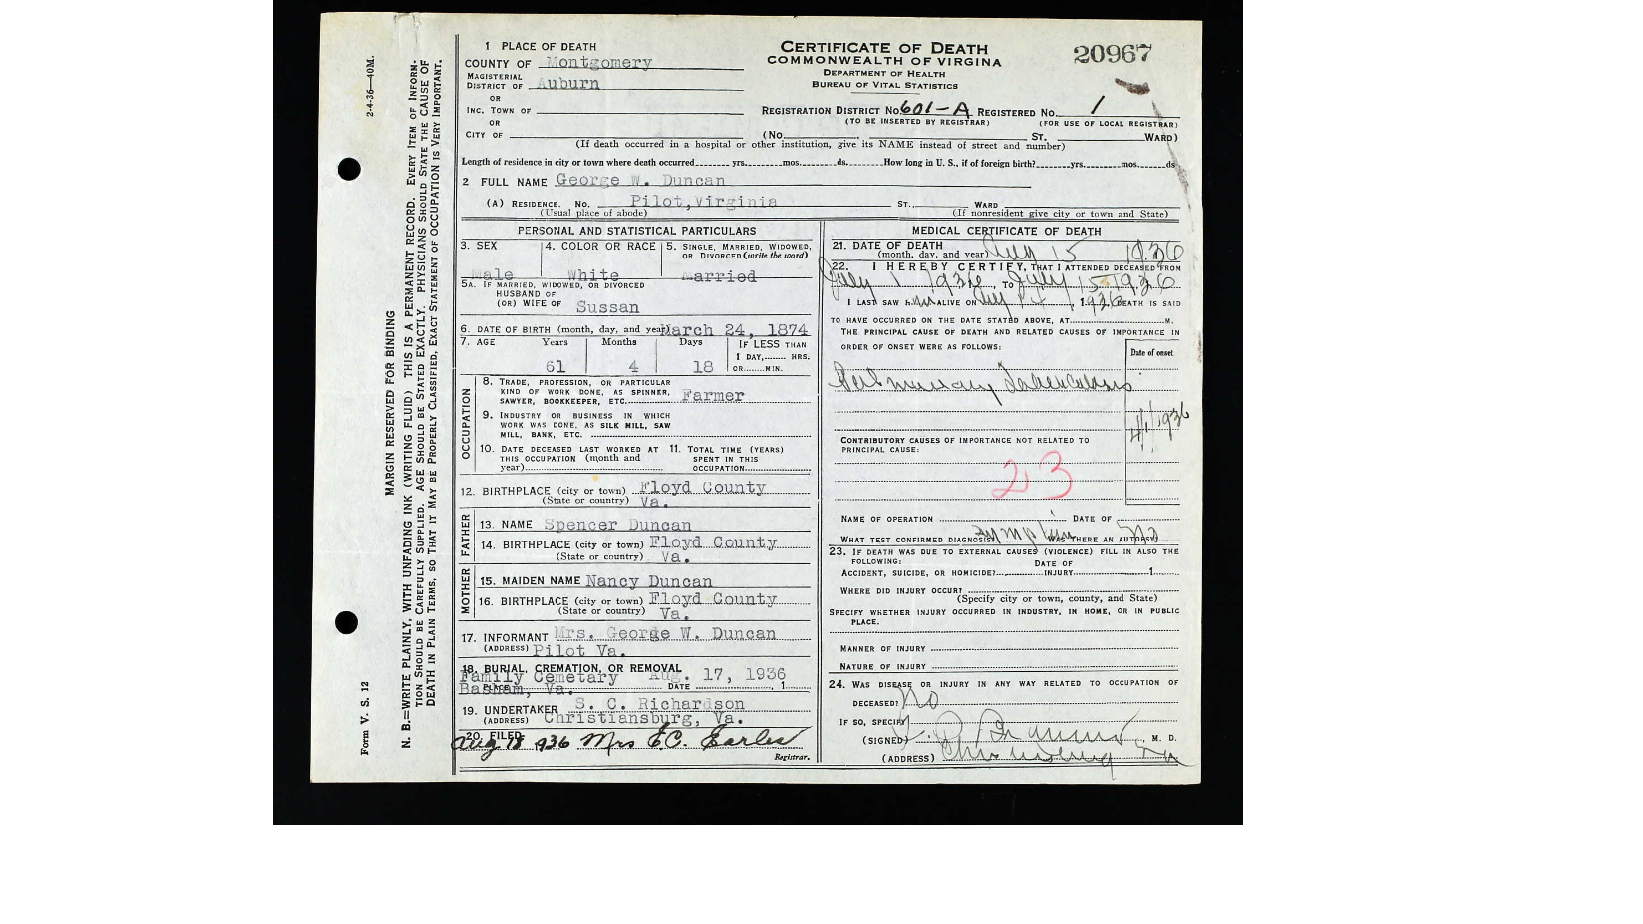 1 PLACE OF DEATH
COUNTY OF Montgomery
MAGISTERIAL
DISTRICT OF Auburn
OR
INC. TOWN OF
OR
CITY OF
CERTIFICATE OF DEATH
COMMONWEALTH OF VIRGINA
DEPARTMENT OF HEALTH
BUREAU OF VITAL STATISTICS
20967
REGISTRATION DISTRICT No. 601-A REGISTERED No. 1
(TO BE INSERTED BY REGISTRAR) (FOR USE OF LOCAL REGISTRAR)
(No. ST. WARD)
(If death occurred in a hospital or other institution, give its NAME instead of street and number)
Length of residence in city or town where death occurred yrs. mos. ds. How long in U. S., if of foreign birth? yrs. mos. ds
2 FULL NAME George W. Duncan
(A) RESIDENCE. No. Pilot,Virginia ST. WARD
(Usual place of abode) (If nonresident give city or town and State)
PERSONAL AND STATISTICAL PARTICULARS
3. SEX 4. COLOR OR RACE 5. SINGLE, MARRIED, WIDOWED,
OR DIVORCED (write the word)
Male White Married
5A. IF MARRIED, WIDOWED, OR DIVORCED
HUSBAND OF
(OR) WIFE OF Sussan
6. DATE OF BIRTH (month, day, and year) March 24, 1874
7. AGE Years Months Days IF LESS THAN
1 DAY, HRS.
61 4 18 OR MIN.
OCCUPATION
8. TRADE, PROFESSION, OR PARTICULAR
KIND OF WORK DONE, AS SPINNER,
SAWYER, BOOKKEEPER, ETC. Farmer
9. INDUSTRY OR BUSINESS IN WHICH
WORK WAS DONE, AS SILK MILL, SAW
MILL, BANK, ETC.
10. DATE DECEASED LAST WORKED AT
THIS OCCUPATION (month and
year)
11. TOTAL TIME (YEARS)
SPENT IN THIS
OCCUPATION
12. BIRTHPLACE (city or town) Floyd County
(State or country) Va.
FATHER
13. NAME Spencer Duncan
14. BIRTHPLACE (city or town) Floyd County
(State or country) Va.
MOTHER
15. MAIDEN NAME Nancy Duncan
16. BIRTHPLACE (city or town) Floyd County
(State or country) Va.
17. INFORMANT Mrs. George W. Duncan
(ADDRESS) Pilot Va.
18. BURIAL, CREMATION, OR REMOVAL
Family Cemetary Aug. 17, 1936
PLACE DATE , 1
Basham, Va.
19. UNDERTAKER S. C. Richardson
(ADDRESS) Christiansburg, Va.
20. FILED
Aug 18 1936 Mrs E.C. Earles
Registrar.
MEDICAL CERTIFICATE OF DEATH
21. DATE OF DEATH
(month, day, and year) Aug 15 1936
22. I HEREBY CERTIFY, THAT I ATTENDED DECEASED FROM
July 1 1936, TO July 15 1936
I LAST SAW H im ALIVE ON 1936, DEATH IS SAID
TO HAVE OCCURRED ON THE DATE STATED ABOVE, AT M.
THE PRINCIPAL CAUSE OF DEATH AND RELATED CAUSES OF IMPORTANCE IN
ORDER OF ONSET WERE AS FOLLOWS:
Date of onset
Pulmonary Tuberculosis
4/1/1936
CONTRIBUTORY CAUSES OF IMPORTANCE NOT RELATED TO
PRINCIPAL CAUSE:
23
NAME OF OPERATION DATE OF
WHAT TEST CONFIRMED DIAGNOSIS? WAS THERE AN AUTOPSY? No
23. IF DEATH WAS DUE TO EXTERNAL CAUSES (VIOLENCE) FILL IN ALSO THE
FOLLOWING: DATE OF
ACCIDENT, SUICIDE, OR HOMICIDE? INJURY 1
WHERE DID INJURY OCCUR?
(Specify city or town, county, and State)
SPECIFY WHETHER INJURY OCCURRED IN INDUSTRY, IN HOME, OR IN PUBLIC
PLACE.
MANNER OF INJURY
NATURE OF INJURY
24. WAS DISEASE OR INJURY IN ANY WAY RELATED TO OCCUPATION OF
DECEASED? No
IF SO, SPECIFY
(SIGNED) M. D.
(ADDRESS)
2-4-36—40M.
MARGIN RESERVED FOR BINDING
N. B.—WRITE PLAINLY, WITH UNFADING INK (WRITING FLUID) THIS IS A PERMANENT RECORD. EVERY ITEM OF INFORM-
TION SHOULD BE CAREFULLY SUPPLIED. AGE SHOULD BE STATED EXACTLY. PHYSICIANS SHOULD STATE THE CAUSE OF
DEATH IN PLAIN TERMS, SO THAT IT MAY BE PROPERLY CLASSIFIED. EXACT STATEMENT OF OCCUPATION IS VERY IMPORTANT.
Form V. S. 12